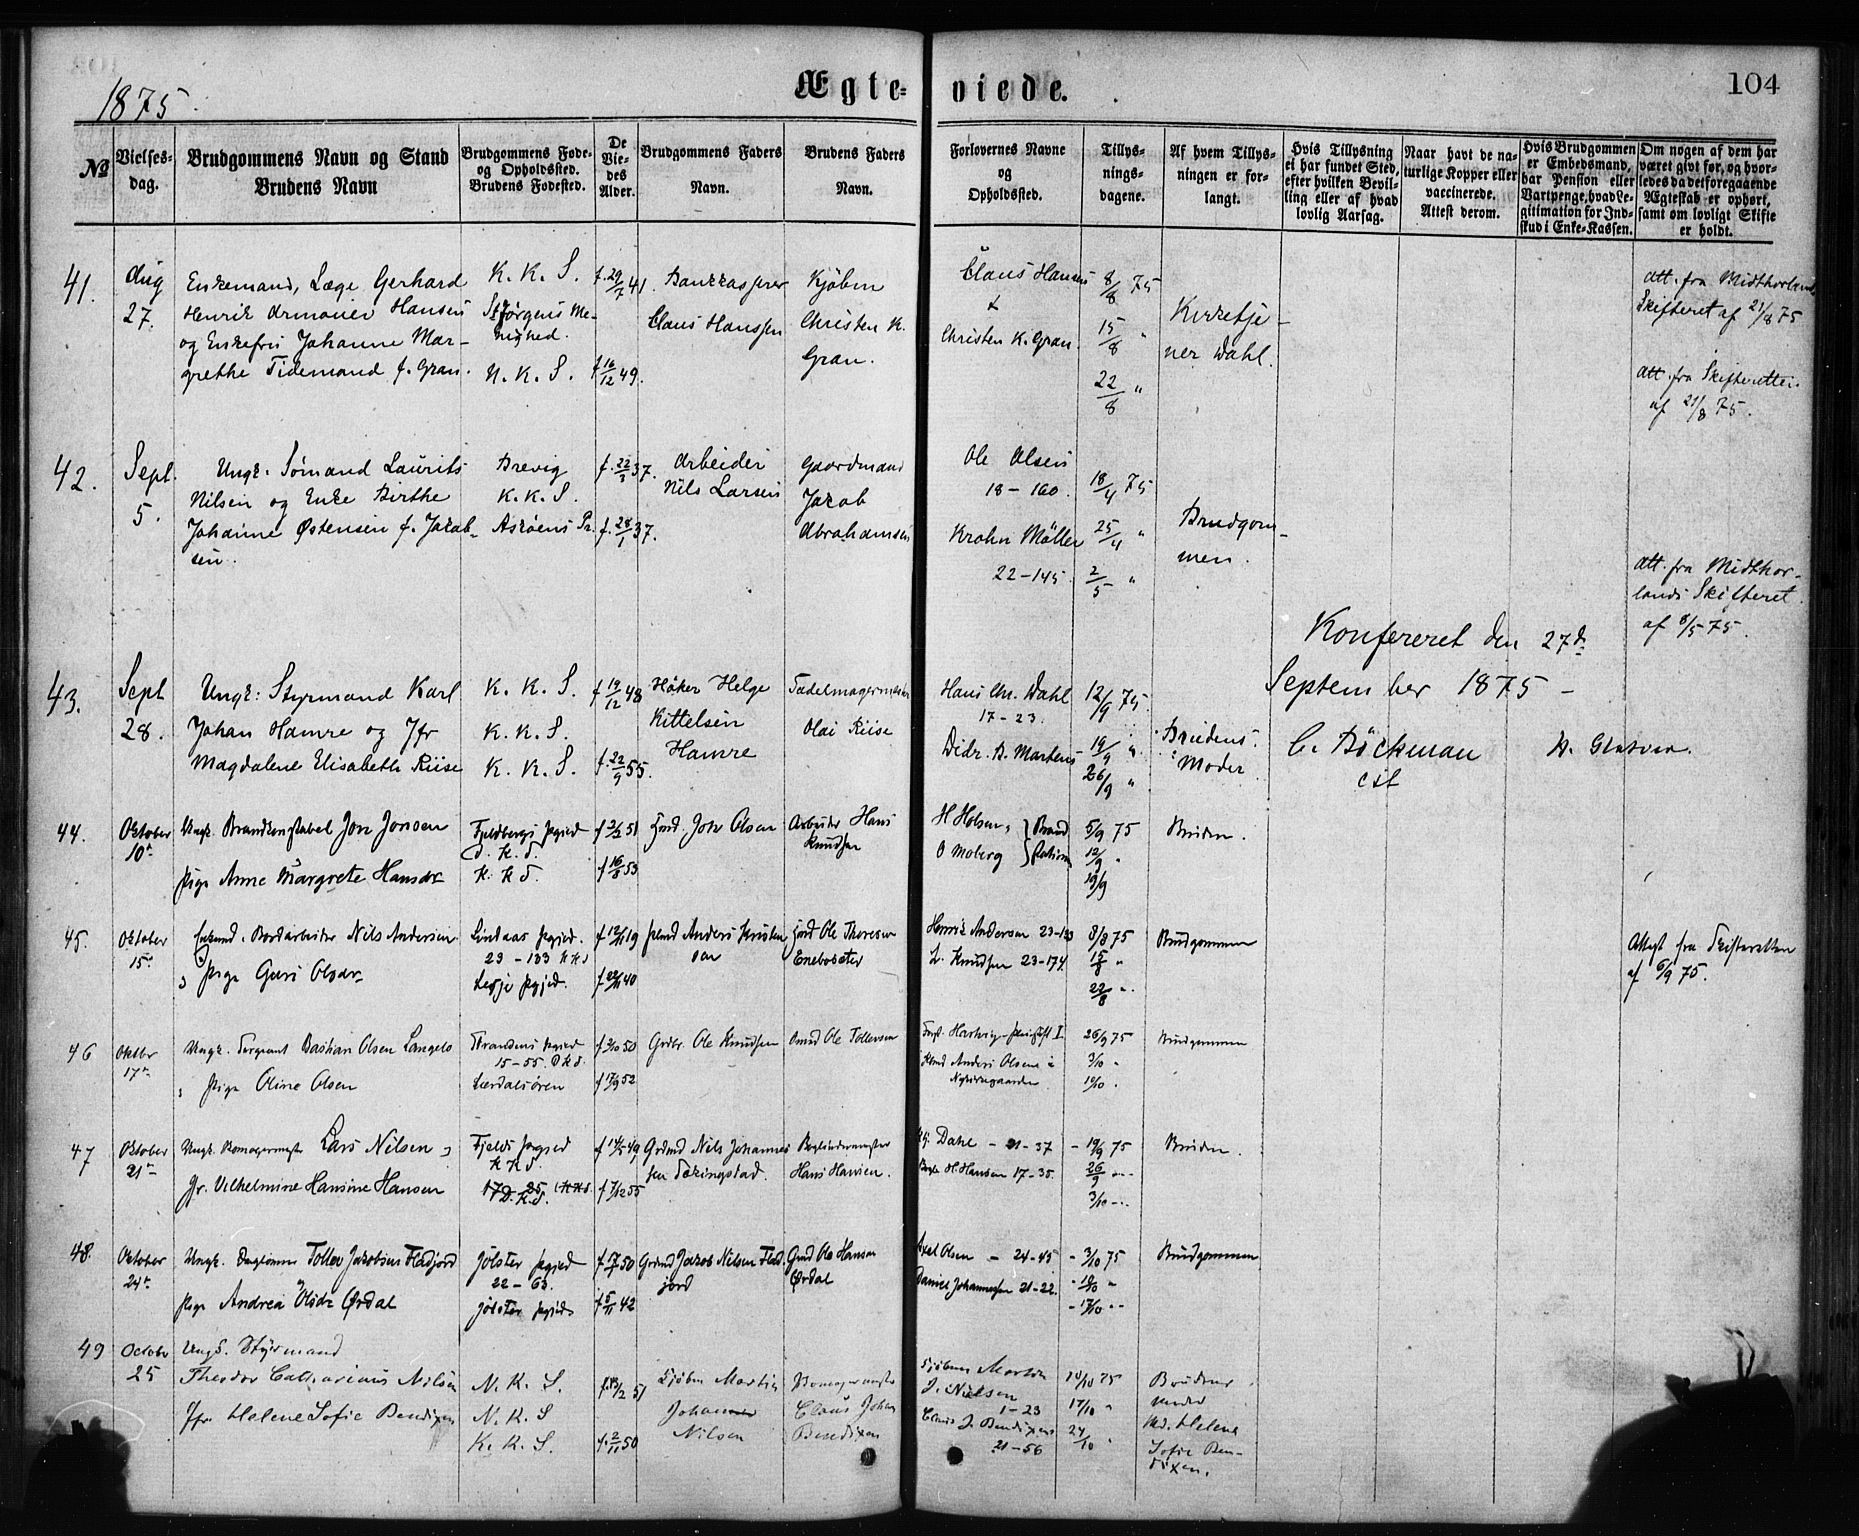 1875.
Ægte-
viede.
104
No
Vielses-
dag.
Brudgommens Navn og Stand
Brudens Navn
Brudgommens Føde-
og Opholdssted.
Brudens Fødested.
De
Vie-
des
Alder.
Brudgommens Faders
Navn.
Brudens Faders
Navn.
Forlovernes Navne
og
Opholdssted.
Tillys-
nings-
dagene.
Af hvem Tillys-
ningen er for-
langt.
Hvis Tillysning
ei har fundet Sted,
efter hvilken Bevil-
ling eller af hvad
lovlig Aarsag.
Naar havt de na-
turlige Kopper eller
vaccinerede.
Attest derom.
Hvis Brudgommen
er Embedsmand,
har Pension eller
Vartpenge, hvad Le-
gitimation for Ind-
skud i Enke-Kassen.
Om nogen af dem har
været givt før, og hvor-
ledes da det foregaaende
Ægteskab er ophørt,
samt om lovligt Skifte
er holdt.
41.
Aug
27.
Enkemand, Læge Gerhard
Henrik Armauer Hansen
og Enkefru Johanne Mar-
grethe Tidemand f. Gran.
K. K. S.
St Jørgens Me-
nighed.
N. K. S.
f. 29/7 41.
f. 16/12 49.
Bankkasserer
Claus Hanssen
Kjøbm
Christen K.
Gran.
Claus Hansen
&
Christen K. Gran.
8/8 75
15/8 "
22/8 "
Kirketje-
ner Dahl.
Att. fra Midthorlands
Skifteret af 21/8 75
Att. fra Skifteretten
af 21/8 75.
42.
Sept.
5.
Ungk. Sømand Laurits
Nilsen og Enke Birthe
Johanne Østensen f. Jakob-
sen.
Brevig
K. K. S.
Askøens Pr.
f. 22/3 37.
f. 28/1 37.
Arbeider
Nils Larsen
Gaardmand
Jakob
Abrahamsen
Ole Olsen
18-160.
Krohn Møller
22-145.
18/4 75
25/4 "
2/5 "
Brudgom-
men.
Att. fra Midthor-
lands Skifteret
af 8/5 75.
Konfereret den 27d
September 1875 -
C. Böckman
cst
43.
Sept
28.
Ungk: Styrmand Karl
Johan Hamre og Jfr
Magdalene Elisabeth Riise
K. K. S.
K. K. S.
K. K. S.
f 19/12 48
f. 22/9 55.
Høker Helge
Kittelsen
Hamre
Sadelmagermester
Olai Riise
Hans Chr. Dahl
17-23.
Didr. B. Martens
12/9 75.
19/9 "
26/9 "
Brudens
Moder
44.
Oktober
10de
Ungk. Brandkonstabel Jon Jonsen
Pige Anne Margrete Hansdr
Fjeldbergs Prgjed
D. K. S.
K. K S.
f 2/2 51
f 16/8 53
Gmd. Jon Olsen
Arbeider Hans
Knudsen
H Holsen,
O Moberg
Brand
Station
5/9 75
12/9 "
19/9
Bruden.
45.
Oktober
15de
Enkmd. Bordarbeider Nils Andersen
, Pige Guri Olsdr
Lindaas Prgjed.
23-133 KKS
Lesje Prgjed.
f 12/11 19
f 22/11 40
Plmd Anders Knuten
sen
Gmd Ole Thoresen
Eneboseter
Henrik Andersen 23-133
L. Knudsen 23-174
8/8 75
15/8 "
22/8 "
Brudgommen
Attest fra Skifteretten
af 6/9 75.
46
Oktbr
17de
Ungk. Sergeant Bastian Olsen Langelo
, Pige Oline Olsen
Strandens Prgjed
15-55. D K S.
Lærdalsøren
f 2/10 50
f 17/9 52
Grdbr. Ole Knudsen
Ole Tollevsen
Anders Olsen i
Nykirkegaarden
26/9 75
3/10 "
10/10 "
Brudgommen
47
Oktober
21de
Ungk. Lars Nilsen ,
Jfr. Vilhelmine Hansine Hansen
Fjelds Prgjed
K K S.
D. K. S.
f 14/5 49
f 7/12 55
Grdmd Nils Johannes
sen
Hans Hansen.
Dahl - 21-37
H. Hansen 17-35.
- 19/9 75
26/9 "
3/10 "
Bruden.
48.
Oktober
24de
Ungk. Tollev Jakobsen Fladjord
Pige Andrea Olsdr Ørdal
Jølster Prgjed
22-63.
Jølster Prgjed
f. 17/7 50
f. 5/11 42
Grdmd Jakob Nilsen Flad-
jord
Gmd Ole Hansen
Ørdal
Axel Olsen - 24-45.
Daniel Johannesen 21-22.
- 3/10 75
- 10/10 "
- 17/10 "
Brudgommen
49
October
25
Ungk. Styrmand
Theodor Catharinus Nilsen
Jfr. Helene Sofie Bendixen
N. K. S.
N. K. S
K. K. S.
f. 2/11 50
Sjøbm Martin
Johan
Nilsen
Claus Johan
Bendixen
Martin
J. Nielsen
1-23
Claus J. Bendixen
21-56
10/10 75
17/10 "
24/10 "
Brudens
Md. Helene
Sofie Ben-
dixen.